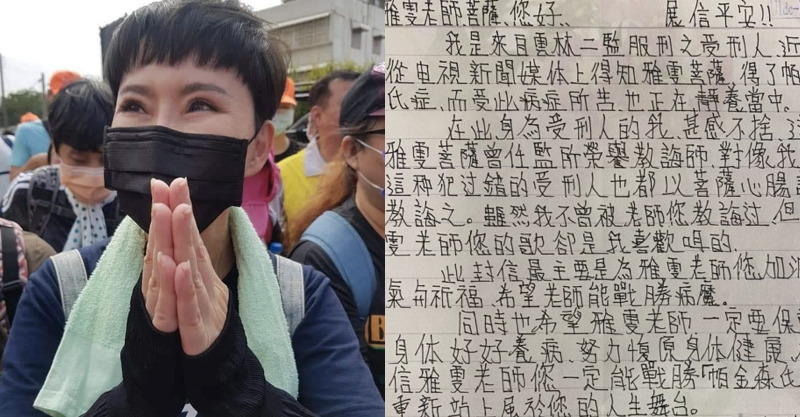 雅雯老師菩薩、您好、 展信平安!!
我是來自雲林二監服刑之受刑人、近
從电視新聞媒体上得知雅雯菩薩、得了帕
氏症、而受此病症所苦、也正在靜養當中。
在此、身為受刑人的我、甚感不捨、
雅雯菩薩曾任監所榮譽教誨師、對像我
這种犯过錯的受刑人也都以菩薩心腸
教誨之。雖然我不曾被老師您教誨过、但
雯老師您的歌卻是我喜歡唱的.
此封信最主要是為雅雯老師您加油
氣与祈福、希望老師能戰勝病魔。
同時也希望雅雯老師一定要保
身体好好養病、努力復原身体健康、
信雅雯老師您一定能戰勝「帕金森氏
重新站上屬於您的人生舞台。